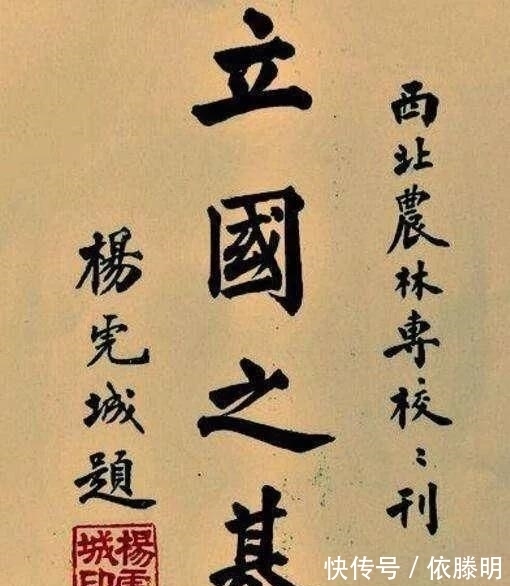 西北農林專校〻刊
立國之基
楊虎城題
楊虎
城印
快传号 / 依滕明